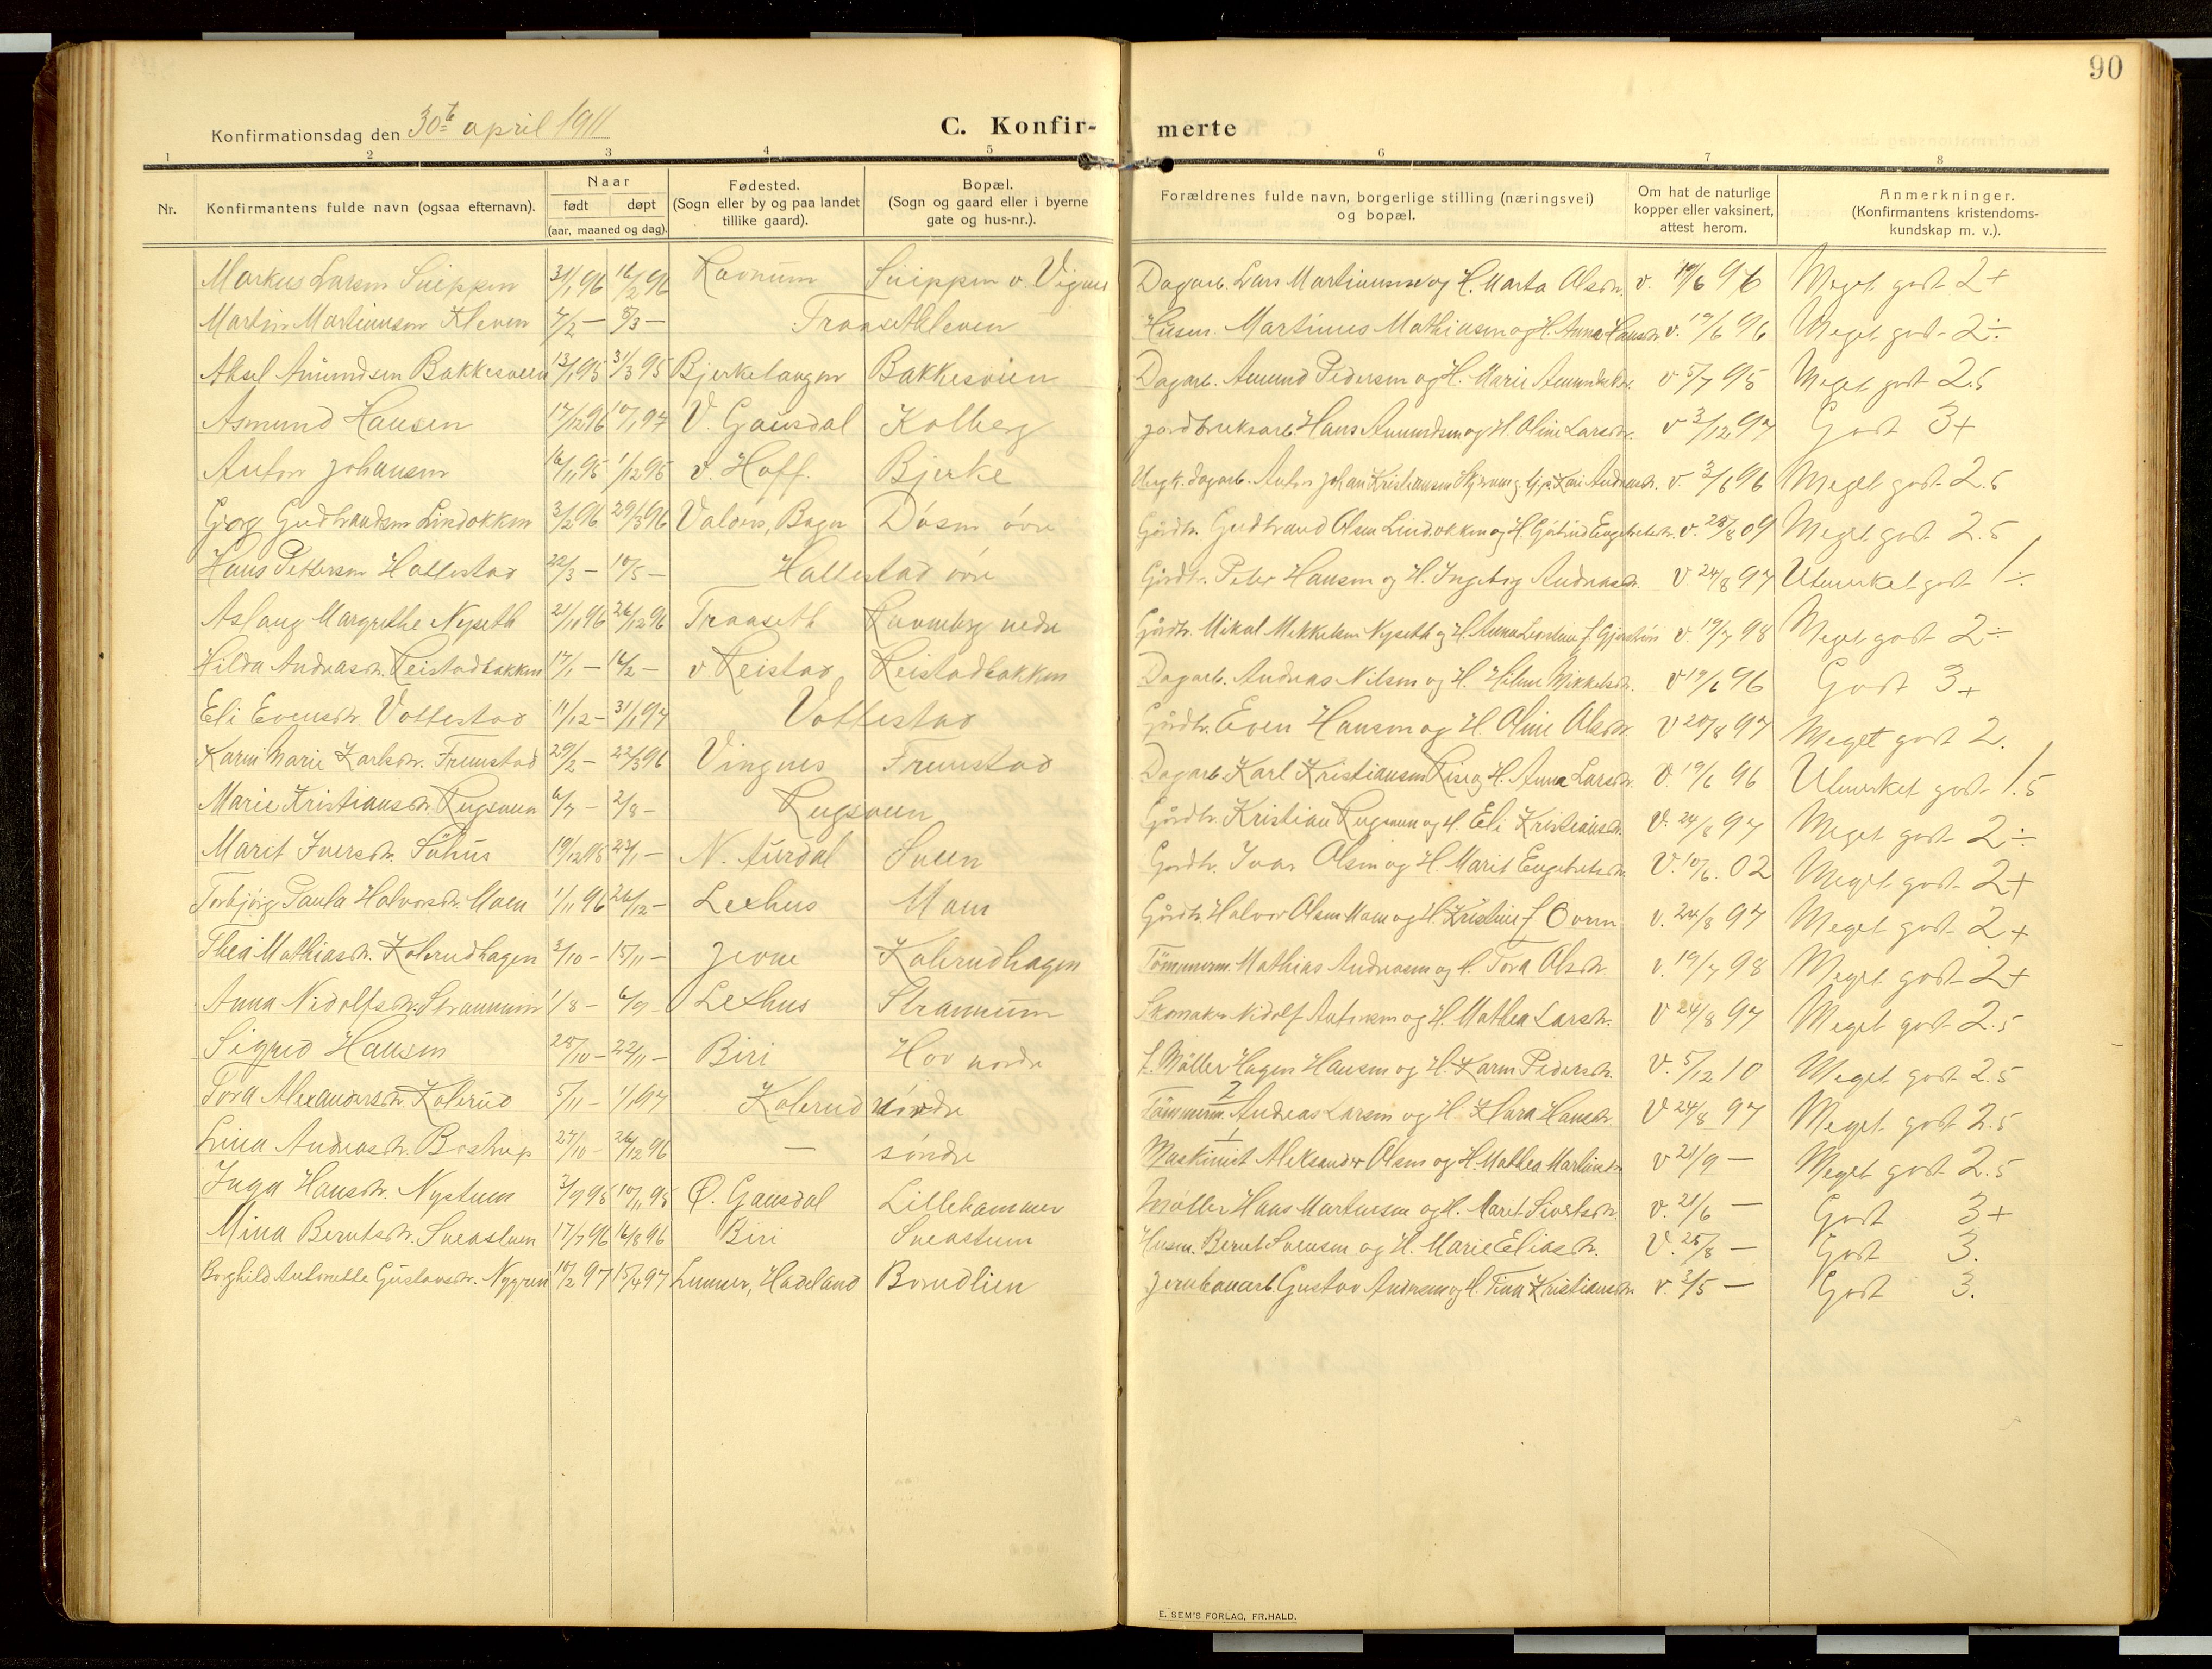 90
Konfirmationsdag den 30te april 1911
C. Konfir-merte
1 2 3 4 5 6 7 8
Nr.
Konfirmantens fulde navn (ogsaa efternavn).
Naar
født døpt
(aar, maaned og dag).
Fødested.
(Sogn eller by og paa landet
tillike gaard).
Bopæl.
(Sogn og gaard eller i byerne
gate og hus-nr.).
Forældrenes fulde navn, borgerlige stilling (næringsvei)
og bopæl.
Om hat de naturlige
kopper eller vaksinert,
attest herom.
Anmerkninger.
(Konfirmantens kristendoms-
kundskap m. v.).
Markus Larsen 31/1 96 16/2 96 Dagarb. Lars Martinusen og H. Marta Olsdr. v. 19/6 96 Meget godt 2+
Martin Martinusen Kleven 7/2 — 8/3 — Traasethleven Husm. Martinus Mathiasen og H. Anna Hansdr. v. 19/6 96 Meget godt 2÷
Aksel Amundsen Bakkesveen 13/1 95 31/3 95 Bjerkelangen Bakkesveen Dagarb. Amund Pedersen og H. Marie Amundsdr. v 5/7 95 Meget godt 2.5
Asmund Hansen 17/12 96 10/1 97 V. Gausdal Kolberg Jordbruksarb. Hans Amundsen og H. Oline Larsdr. v 3/12 97 Godt 3+
Anton Johansen 16/11 95 1/12 95 v. Hoff. Bjerke Ungk. dagarb. Anton Johan Kristiansen v. 3/6 96 Meget godt 2.5
Georg Gudbrandsen Lindokken 3/2 96 29/3 96 Valdres, Bagn Dösen övre Gårdbr. Gudbrand Olsen Lindokken og H. v. 28/8 09 Meget godt 2.5
Hans Pettersen Hallestad 22/3 — 10/5 — Hallestad övre Gårdbr. Peter Hansen og H. Ingeborg Andreasdr. v. 24/8 97 Utmerket godt 1÷
Aslaug Margrethe Nyseth 21/11 96 26/12 96 Traaseth Ravnberg nedre Gårdbr. Mikal Mikkelsen Nyseth og H. Anna v. 19/7 98 Meget godt 2÷
Hilda Andreasdr. Reistadbakken 17/1 — 16/2 — v Reistad Reistadbakken Dagarb. Andreas Nilsen og H. Helene Mikkelsdr. v 19/6 96 Godt 3+
Eli Evensdr. Vollestad 11/12 — 31/1 97 Vollestad Gårdbr. Even Hansen og H. Oline Olsdr. v 28/8 97 Meget godt 2.
Karen Marie Karlsdr. Fremstad 29/2 — 22/3 96 Vingnes Fremstad Dagarb. Karl Kristiansen Rise og H. Anna Larsdr. v. 19/6 96 Utmerket godt 1.5
Marie Kristiansdr. Rugsveen 6/7 — 2/8 — Rugsveen Gårdbr. Kristian Rugsveen og H. Eli Kristiansdr. v. 24/8 97 Meget godt 2÷
Marit Iversdr. 19/12 95 23/1 — N. Aurdal Sveen Gårdbr. Ivar Olsen og H. Marit Engebretsdr. v. 10/6. 02 Meget godt 2+
Torbjörg Paula Halvorsdr. Moen 1/11 96 26/12 — Lexhus Moen Gårdbr. Halvor Olsen Moen og H. Kristine f. v. 24/8 97 Meget godt 2+
Thea Mathiasdr. Kolerudhagen 3/10 — 15/11 — Jevne Kolerudhagen Tömmerm. Mathias Andreasen og H. Tora Olsdr. v. 19/7 98 Meget godt 2+
Anna Nidolfsdr. Stranmin 1/8 — 6/9 Lexhus Skomaker Nidolf Antonsen og H. Mathea Larsdr. v 24/8 97 Meget godt 2.5
Sigrid Hansen 25/10 — 22/11 — Biri Hov nordre f. Möller Hagen Hansen og H. Karen Pedersdr. v. 5/12 10 Meget godt 2.5
Tora Alexandersdr. Kolerud 5/11 — 1/1 97 Kolerud nordre Tömmerm. Andreas Larsen og H. Klara Hansdr. v 24/8 97 Meget godt 2.5
Lina Andreasdr. Bostrup 27/10 — 26/12 96 — söndre Maskinist Aleksander Olsen og H. Mathea Martinsdr. v 21/9 — Meget godt 2.5
Inga Hansdr. Nystuen 3/9 95 10/11 95 Ø. Gausdal Lillehammer Möller Hans Martinsen og H. Marit Sivertsdr. v. 21/6 — Godt 3+
Mina Berntsdr. Sveastuen 17/7 96 16/8 96 Biri Sveastuen Husm. Bernt Svensen og H. Marie Eliasdr. v. 25/8 — Godt 3.
Borghild Antonette Gustavsdr. Nygren 10/2 97 15/4 97 Lunner, Hadeland Brendlien Jernbanearb. Gustav Andersen og H. Tina Kristiansdr. v. 3/5 — Godt 3.
E. SEM'S FORLAG, FR.HALD.